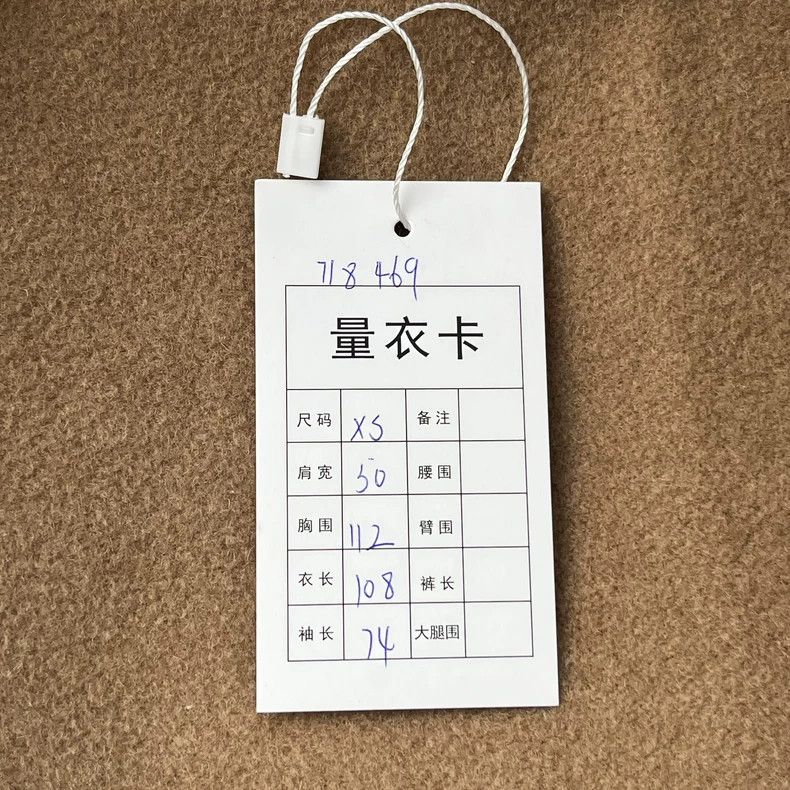 718 469
量衣卡
尺码 XS 备注
肩宽 50 腰围
胸围 112 臂围
衣长 108 裤长
袖长 74 大腿围